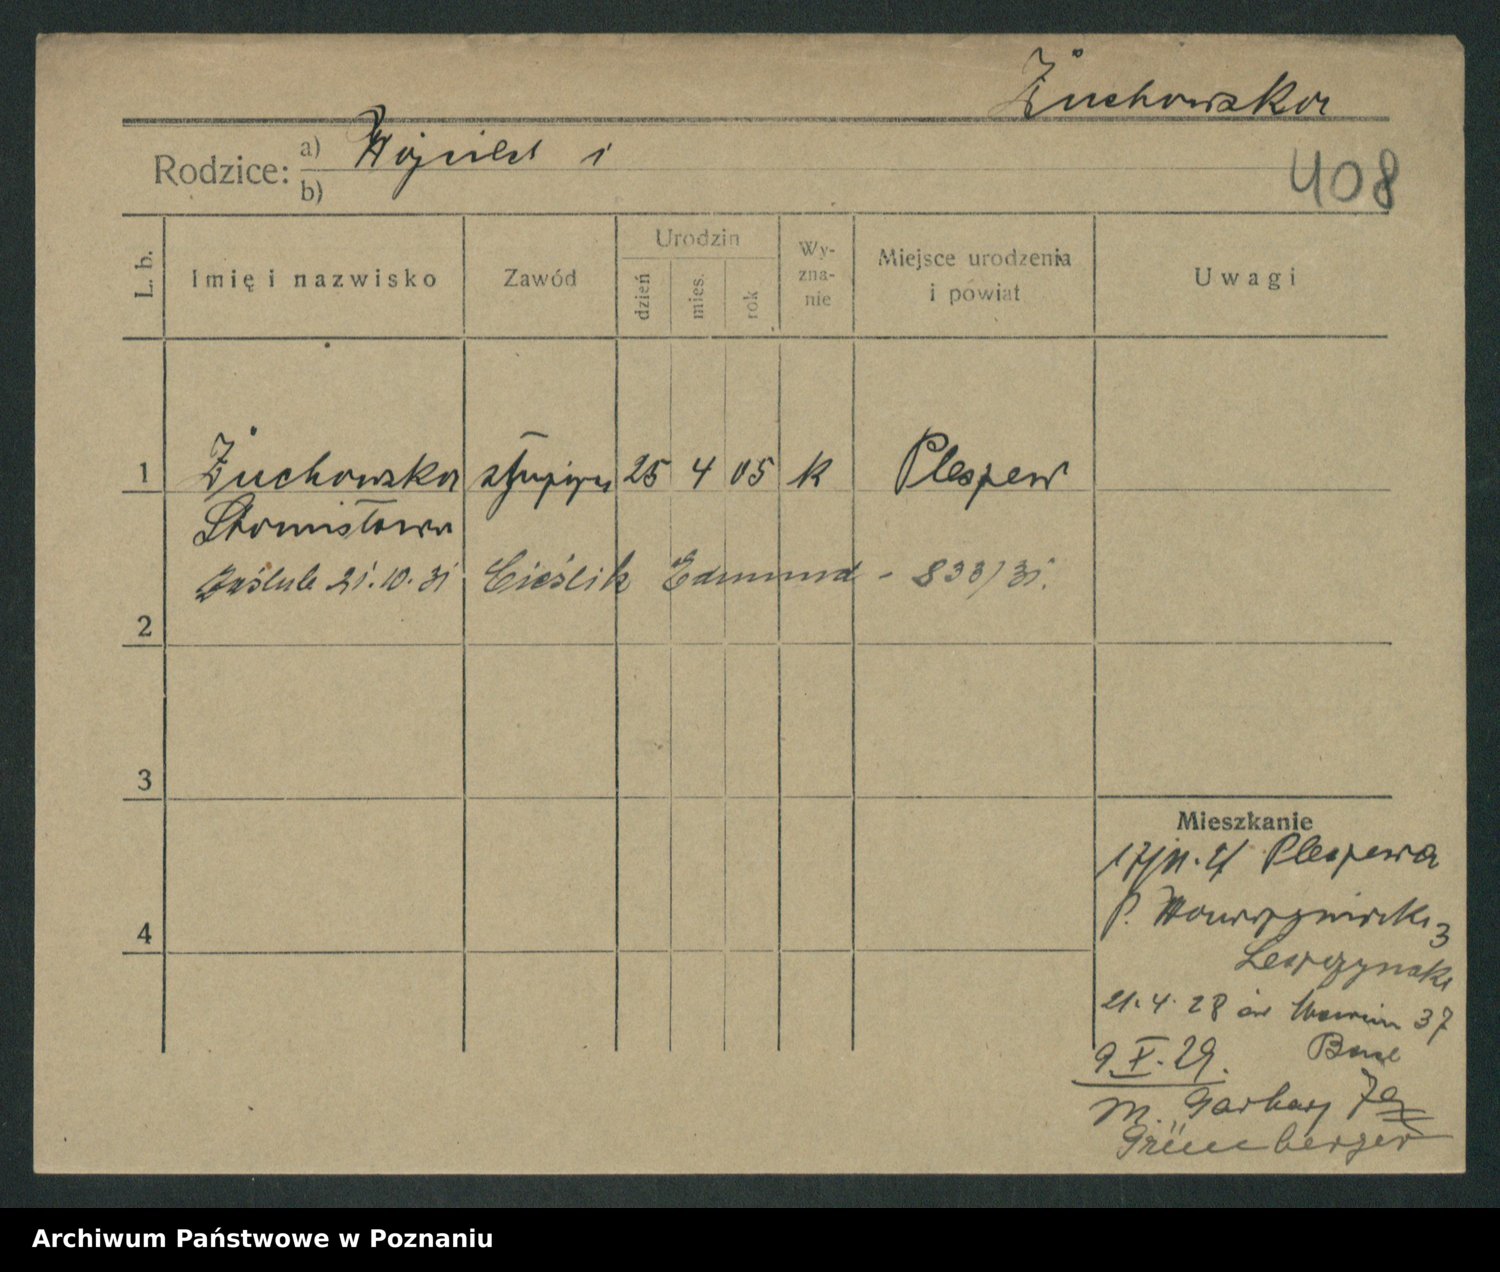 Żuchowska
Rodzice: a) Wojciech i
b)
408
L. b.
Imię i nazwisko
Zawód
Urodzin
dzień
mies.
rok
Wy-
zna-
nie
Miejsce urodzenia
i powiat
Uwagi
1 Żuchowska służąca 25 4 05 k Pleszew
Stanisława
Zaślub. 21.10.31 Cieślik Edmund - 833/31.
2
3
4
Mieszkanie
Pleszewa
P. Wawrzyniaka 3
Leszczynski
21.4.28 37
9.X.29.
m. Garbary 7a
Grünberger
Archiwum Państwowe w Poznaniu